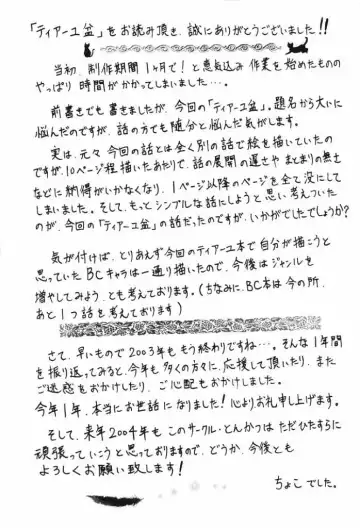 「ティアーユ盆」をお読み頂き、誠にありがとうございました!!
当初、制作期間1ヶ月で!と意気込み作業を始めたものの
やっぱり時間がかかってしまいました…。
前書きでも書きましたが、今回の「ティアーユ盆」。題名から大いに
悩んだのですが、話の方でも随分と悩んだ気がします。
実は、元々今回の話とは全く別の話で絵を描いていたの
ですが、10ページ程描いたあたりで、話の展開の遅さやまとまりの無さ
などに納得がいかなくなり、1ページ以降のページを全て没にして
しまいました。そして、もっとシンプルな話にしようと思い考えついた
のが、今回の「ティアーユ盆」の話だったのですが、いかがでしたでしょうか?
気が付けば、とりあえず今回のティアーユ本で自分が描こうと
思っていたBCキャラは一通り描いたので、今後はジャンルを
増やしてみよう、とも考えております。(ちなみに、BC本は今の所、
あと1つ話を考えております)
さて、早いもので2003年ももう終わりですね…。そんな1年間
を振り返ってみると、今年も多くの方々に、応援して頂いたり、また
ご迷惑をおかけしたり、ご心配もおかけしました。
今年1年、本当にお世話になりました!心よりお礼申し上げます。
そして、来年2004年もこのサークル・とんかつはただひたすらに
頑張っていこうと思っておりますので、どうか、今後とも
よろしくお願い致します!
ちょこでした。